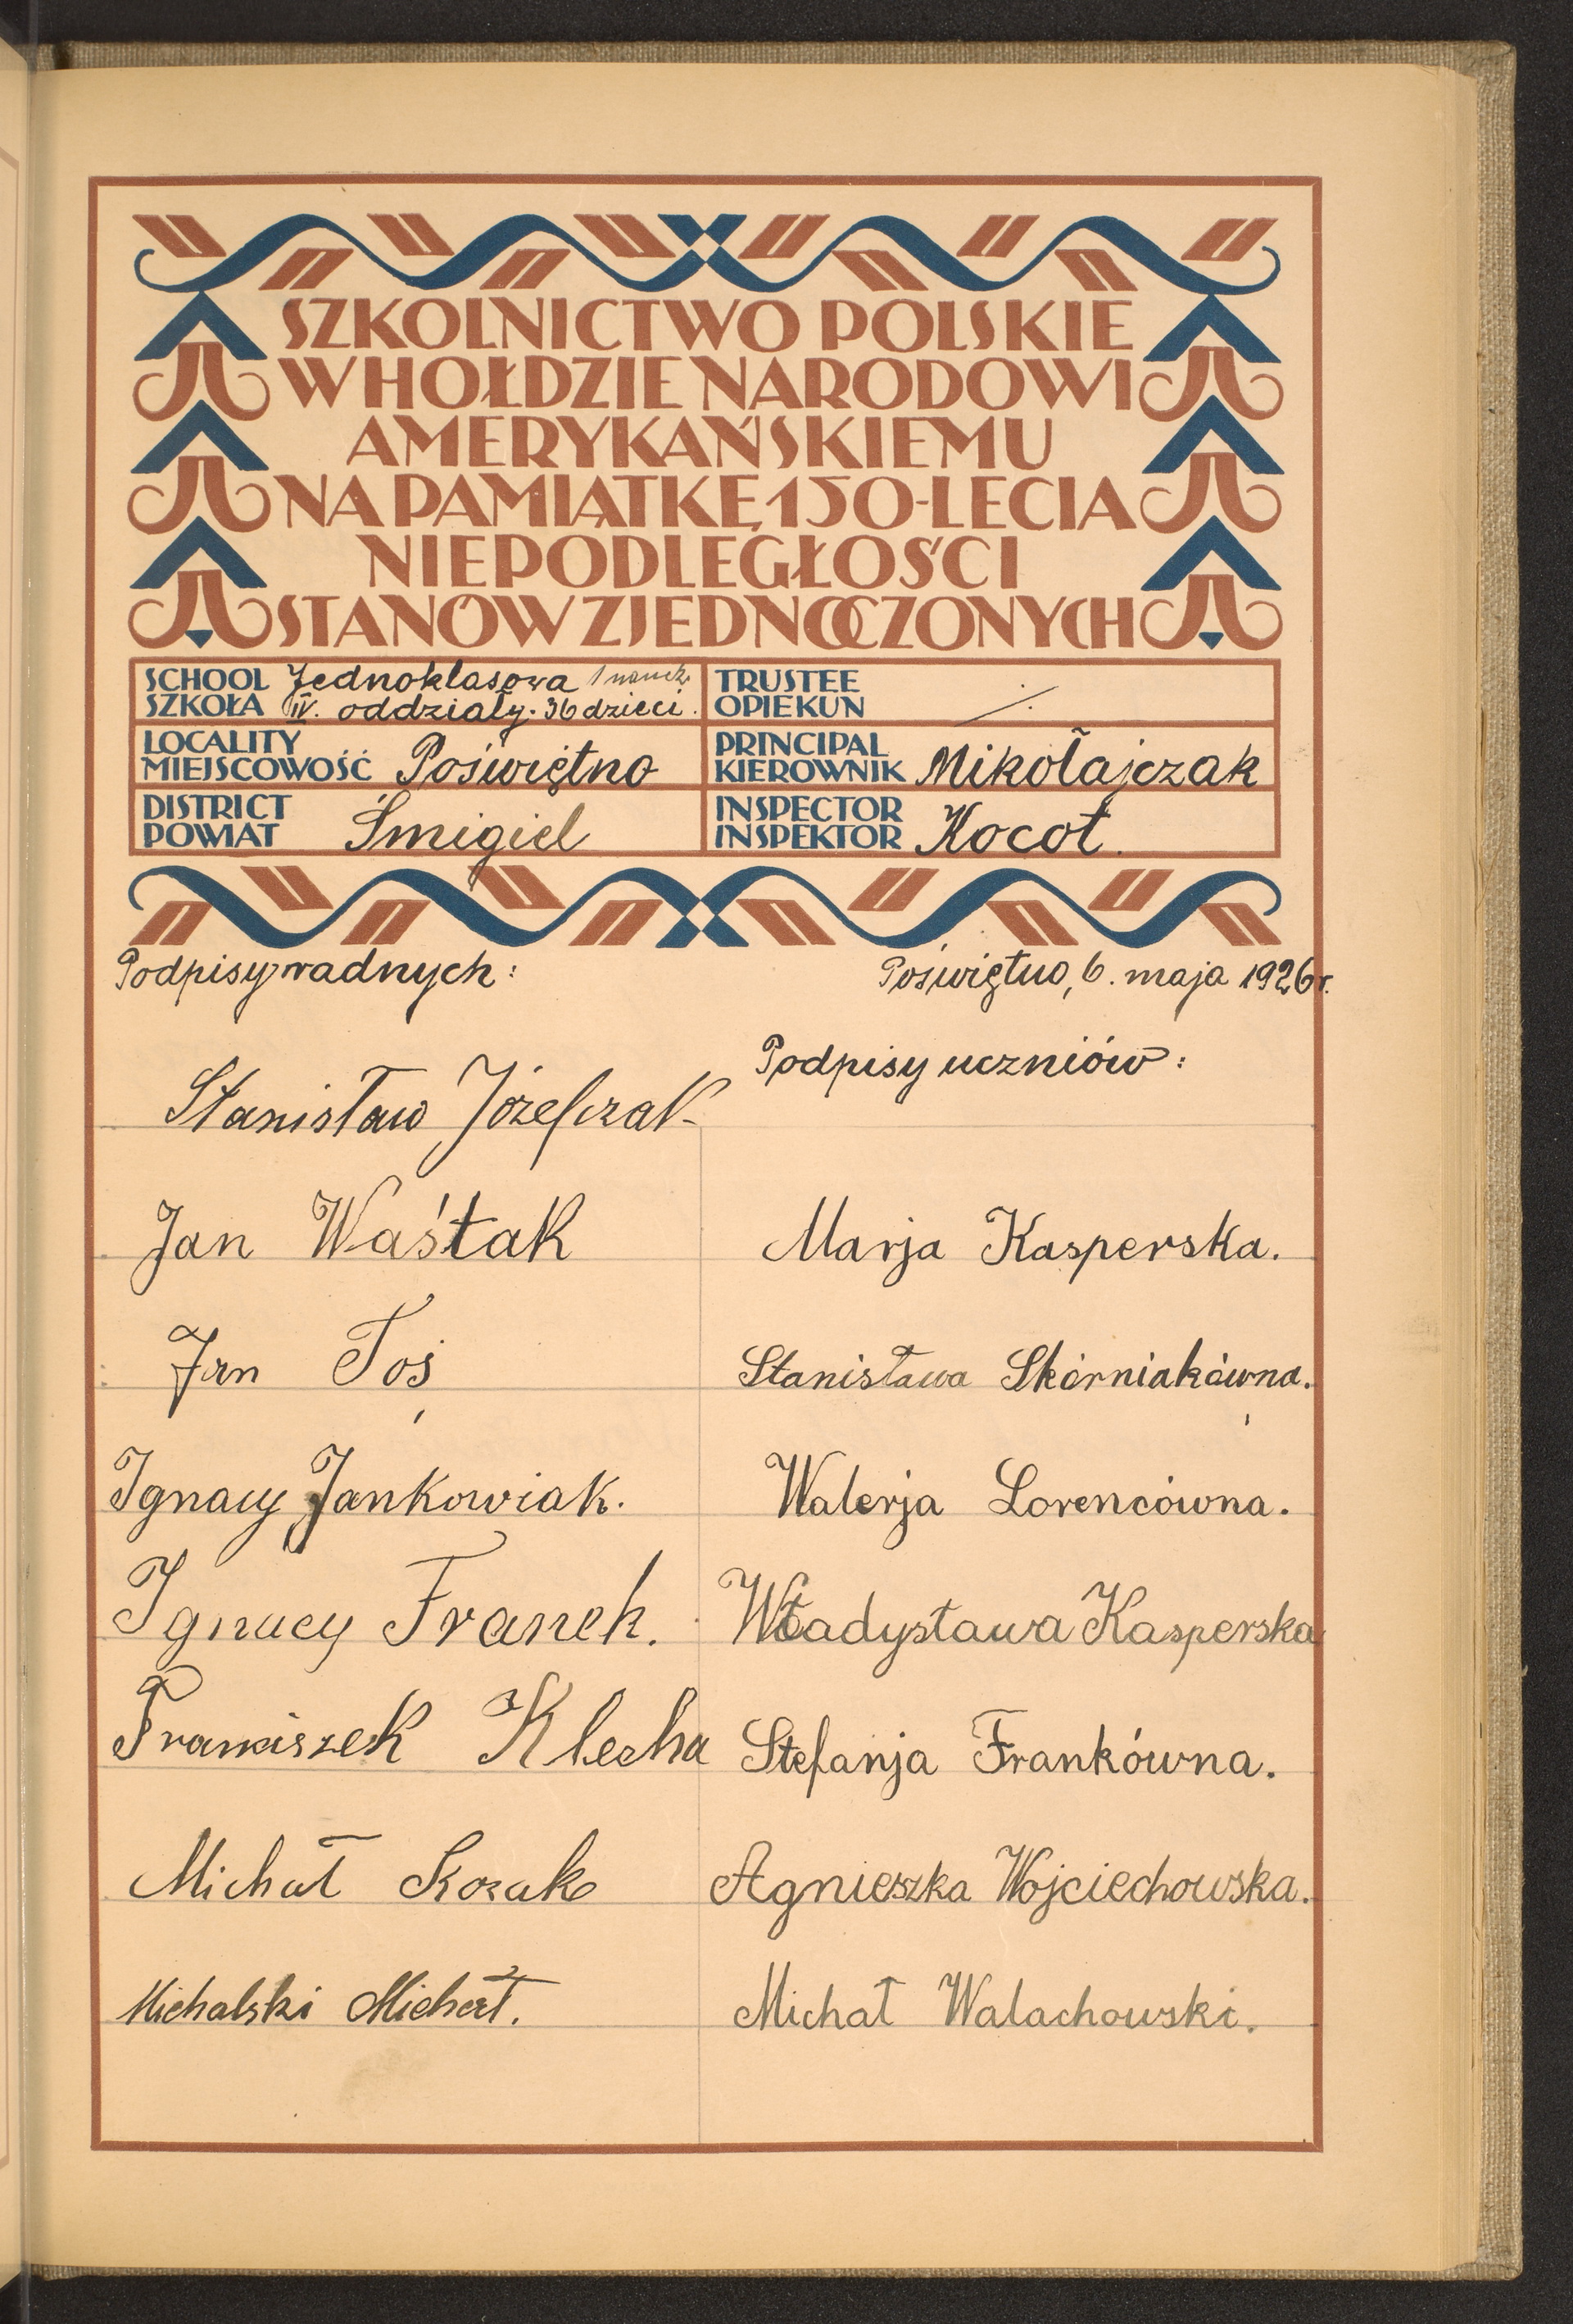 SZKOLNICTWO POLSKIE
W HOŁDZIE NARODOWI
AMERYKAŃSKIEMU
NA PAMIĄTKĘ 150-LECIA
NIEPODLEGŁOŚCI
STANÓW ZJEDNOCZONYCH
SCHOOL
SZKOŁA
Jednoklasowa 1 naucz.
IV. oddziały. 36 dzieci.
TRUSTEE
OPIEKUN
LOCALITY
MIEJSCOWOŚĆ
Poświętno
PRINCIPAL
KIEROWNIK
Mikołajczak
DISTRICT
POWIAT
Śmigiel
INSPECTOR
INSPEKTOR
Kocot.
Podpisy radnych:
Poświętno, 6. maja 1926 r.
Podpisy uczniów:
Stanisław Józefczak
Jan Waśtak
Marja Kasperska.
Jan Toś
Stanisława Skórniakówna.
Ignacy Jankowiak.
Walerja Lorencówna.
Ignacy Franek.
Władysława Kasperska
Franciszek Klecha
Stefanja Frankówna.
Michał Kozak
Agnieszka Wojciechowska.
Michalski Michał.
Michał Walachowski.